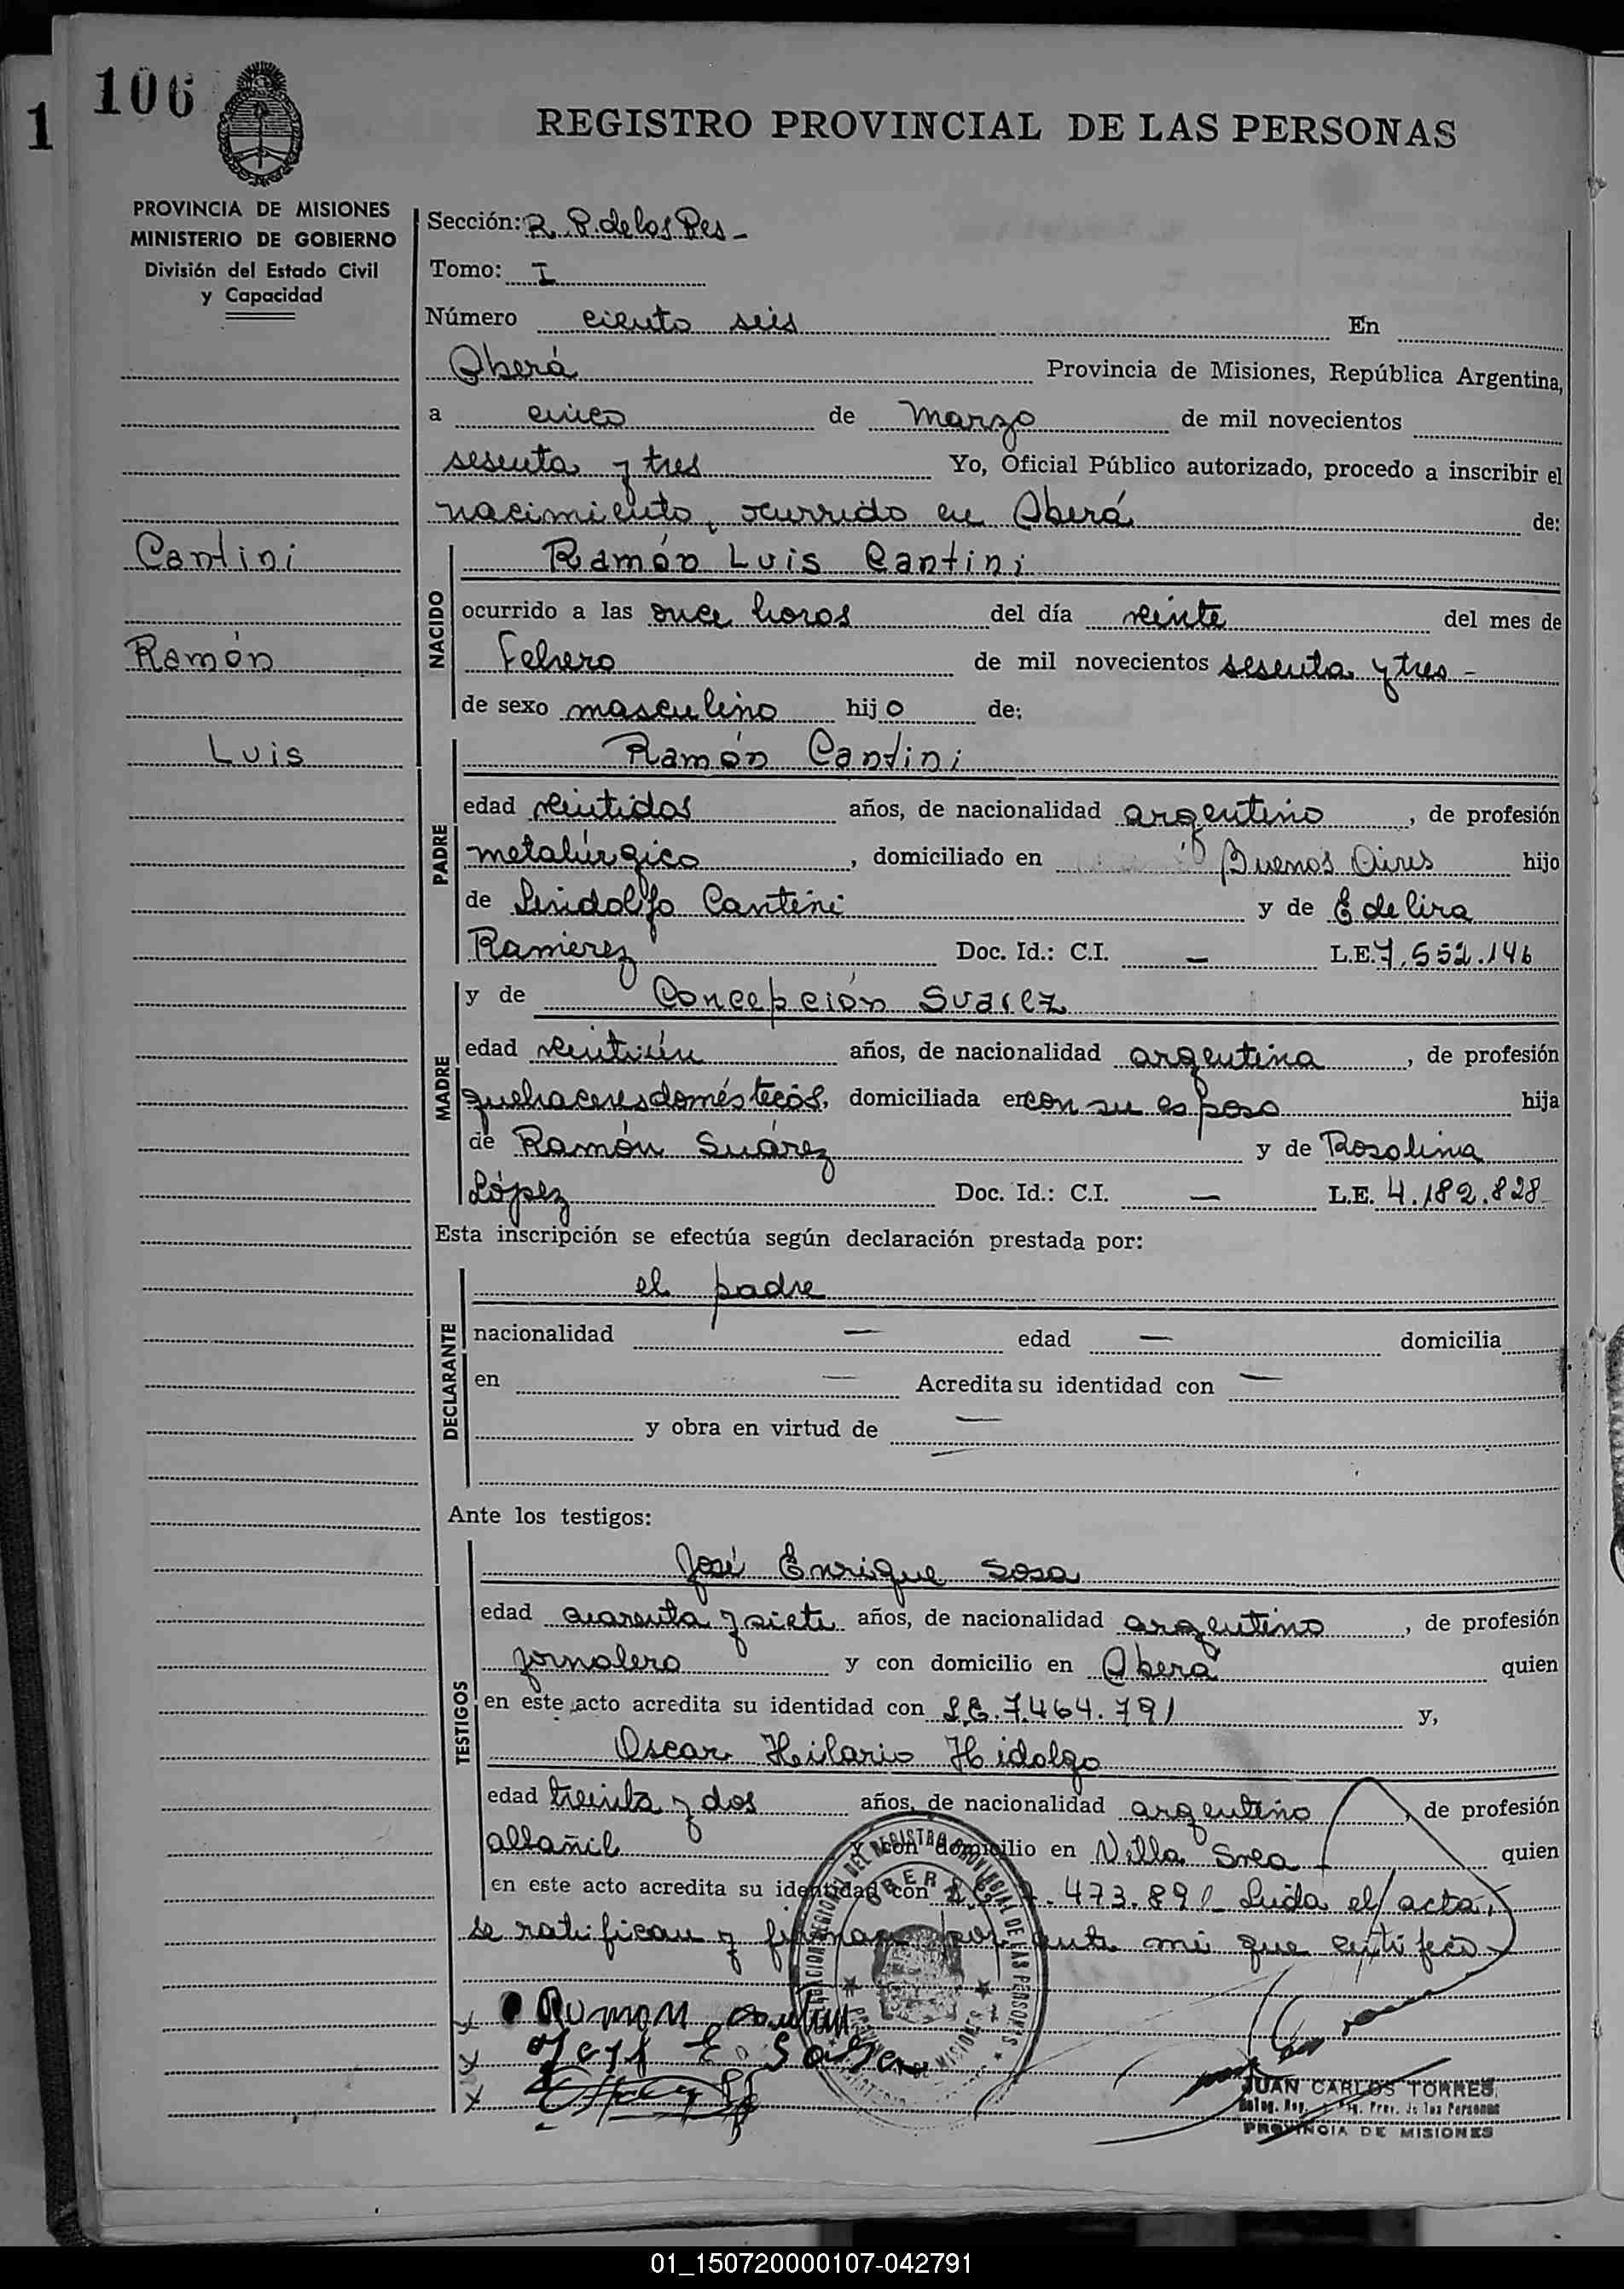 106
1
REGISTRO PROVINCIAL DE LAS PERSONAS
PROVINCIA DE MISIONES
MINISTERIO DE GOBIERNO
División del Estado Civil
y Capacidad
Cantini
Ramón
Luis
Sección: R. P. de los Pes -
Tomo: I
Número ciento seis En
Oberá Provincia de Misiones, República Argentina,
a cinco de Marzo de mil novecientos
sesenta y tres Yo, Oficial Público autorizado, procedo a inscribir el
nacimiento, ocurrido en Oberá de:
NACIDO
Ramón Luis Cantini
ocurrido a las once horas del día veinte del mes de
Febrero de mil novecientos sesenta y tres -
de sexo masculino hijo de:
PADRE
Ramón Cantini
edad veintidos años, de nacionalidad argentino, de profesión
metalúrgico, domiciliado en Buenos Aires hijo
de Lindolfo Cantini y de Edelira
Ramirez Doc. Id.: C.I. — L.E. 7.552.146
MADRE
y de Concepción Suarez
edad veintiún años, de nacionalidad argentina, de profesión
quehaceres domésticos, domiciliada en con su esposo hija
de Ramón Suárez y de Rosalina
López Doc. Id.: C.I. — L.E. 4.182.828
Esta inscripción se efectúa según declaración prestada por:
DECLARANTE
el padre
nacionalidad — edad — domicilia
en — Acredita su identidad con —
y obra en virtud de —
Ante los testigos:
TESTIGOS
José Enrique Sosa
edad cuarenta y siete años, de nacionalidad argentino, de profesión
jornalero y con domicilio en Oberá quien
en este acto acredita su identidad con L.E. 7.464.791 y,
Oscar Hilario Hidolgo
edad treinta y dos años, de nacionalidad argentino, de profesión
albañil y con domicilio en Villa Svea quien
en este acto acredita su identidad con .473.891 - Leída el acta,
se ratifican y firman por ante mi que certifico
Ramon
JUAN CARLOS TORRES
Prov. de las Personas
PROVINCIA DE MISIONES
01_150720000107-042791